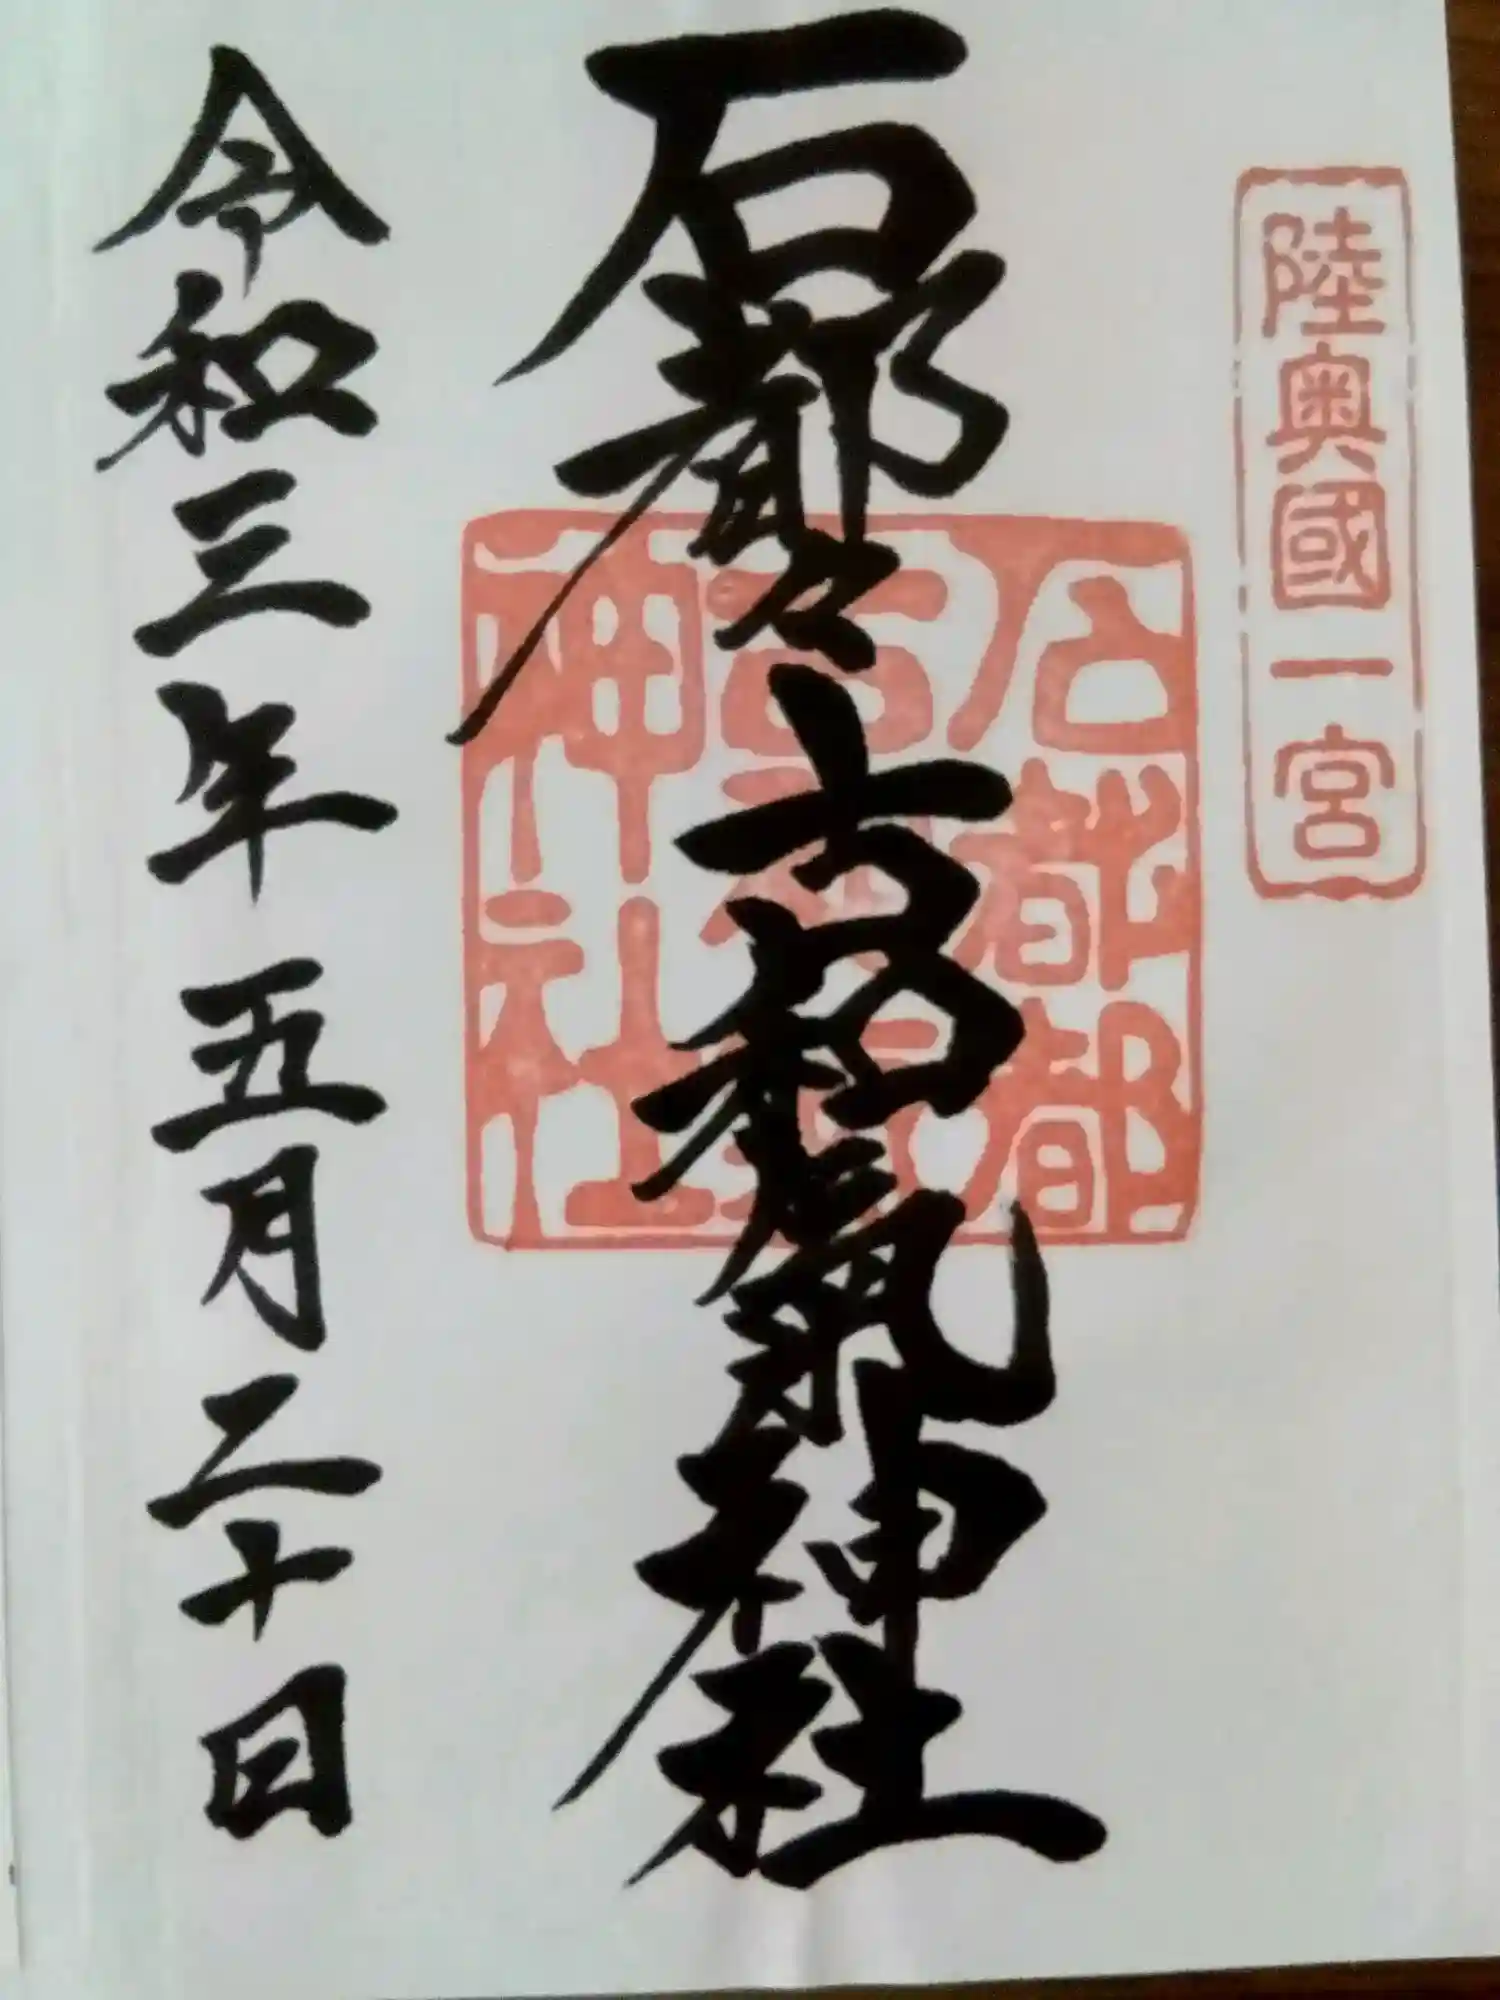 陸奥國一宮
石都々古和氣神社
石都都古和氣神社
令和三年五月二十日